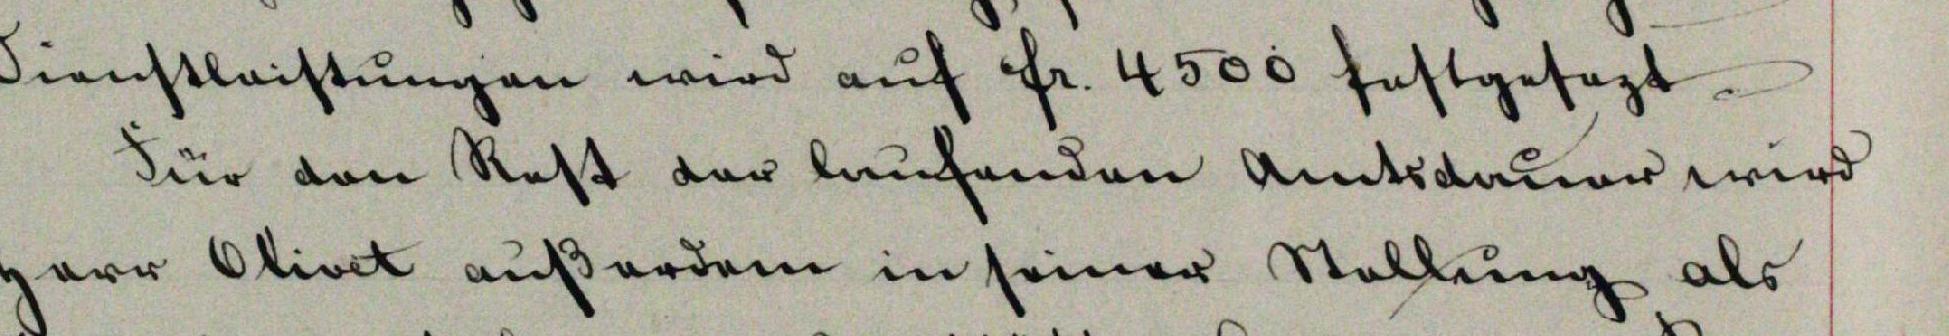 Dienstleistungen wird auf Fr. 4500 festgesezt.
Für den Rest der laufenden Amtsdauer wird
Herr Olivet außerdem in seiner Stellung als